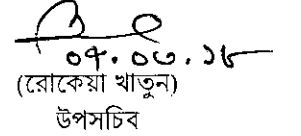 ০৭.০৩.১৮
(রোকেয়া খাতুন)
উপসচিব